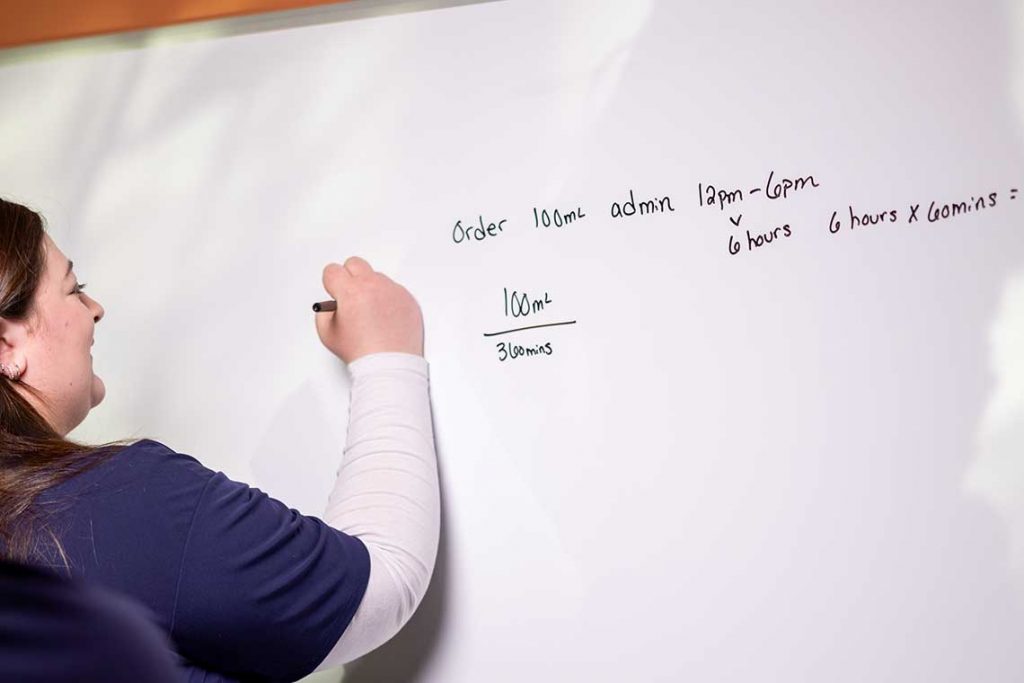 Order 100mL admin 12pm-6pm
6 hours 6 hours x 60mins =
100mL
360mins